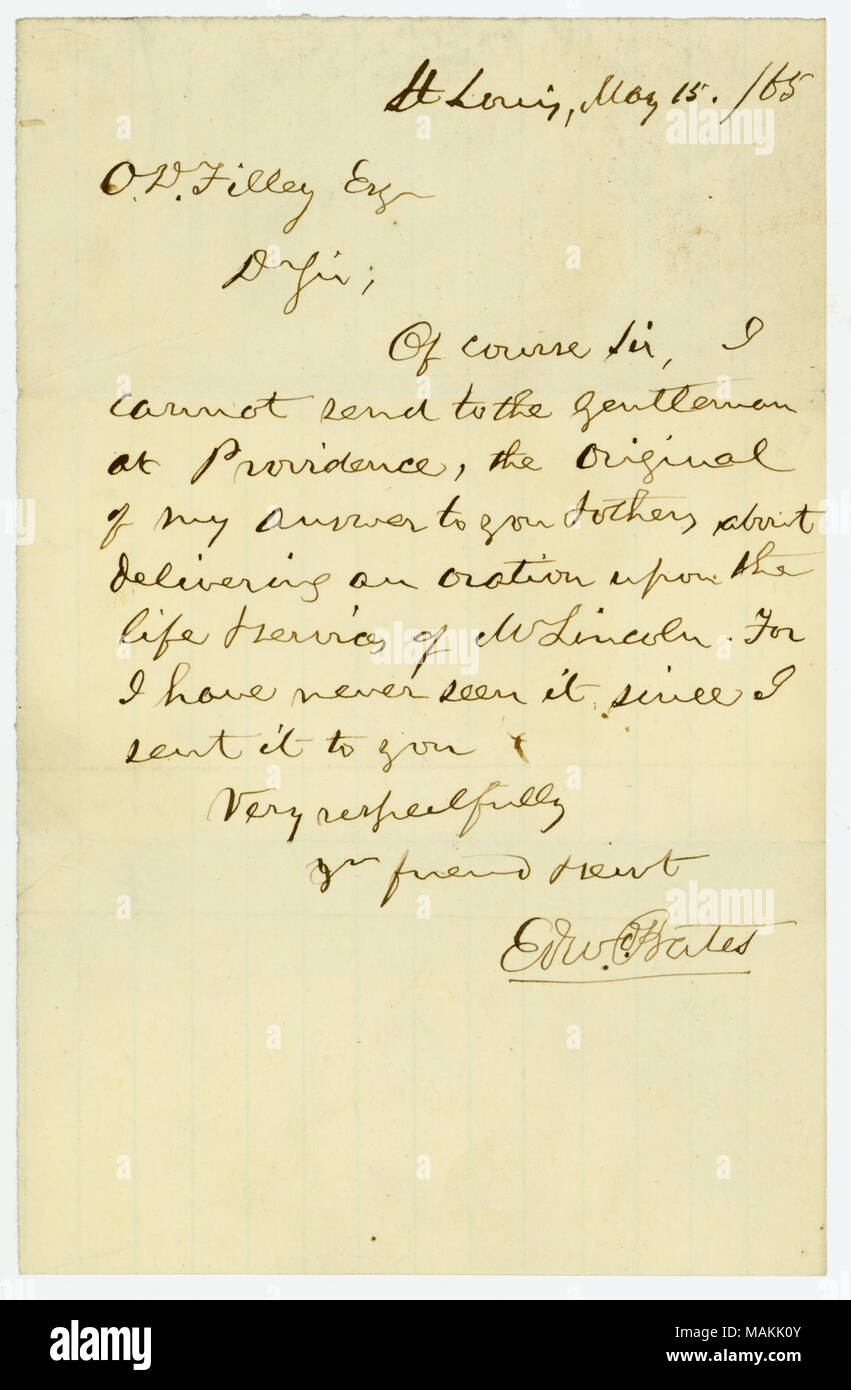 St Louis, May 15. /65
O. D. Filley Esq
Dr Sir;
Of course Sir, I
cannot send to the gentleman
at Providence, the original
of my answer to you & others, about
delivering an oration upon the
life & services of Mr Lincoln. For
I have never seen it, since I
sent it to you
Very respectfully
Yr friend & servt
Edw. Bates
a alamy
alamy
Image ID: MAKK0Y
www.alamy.com